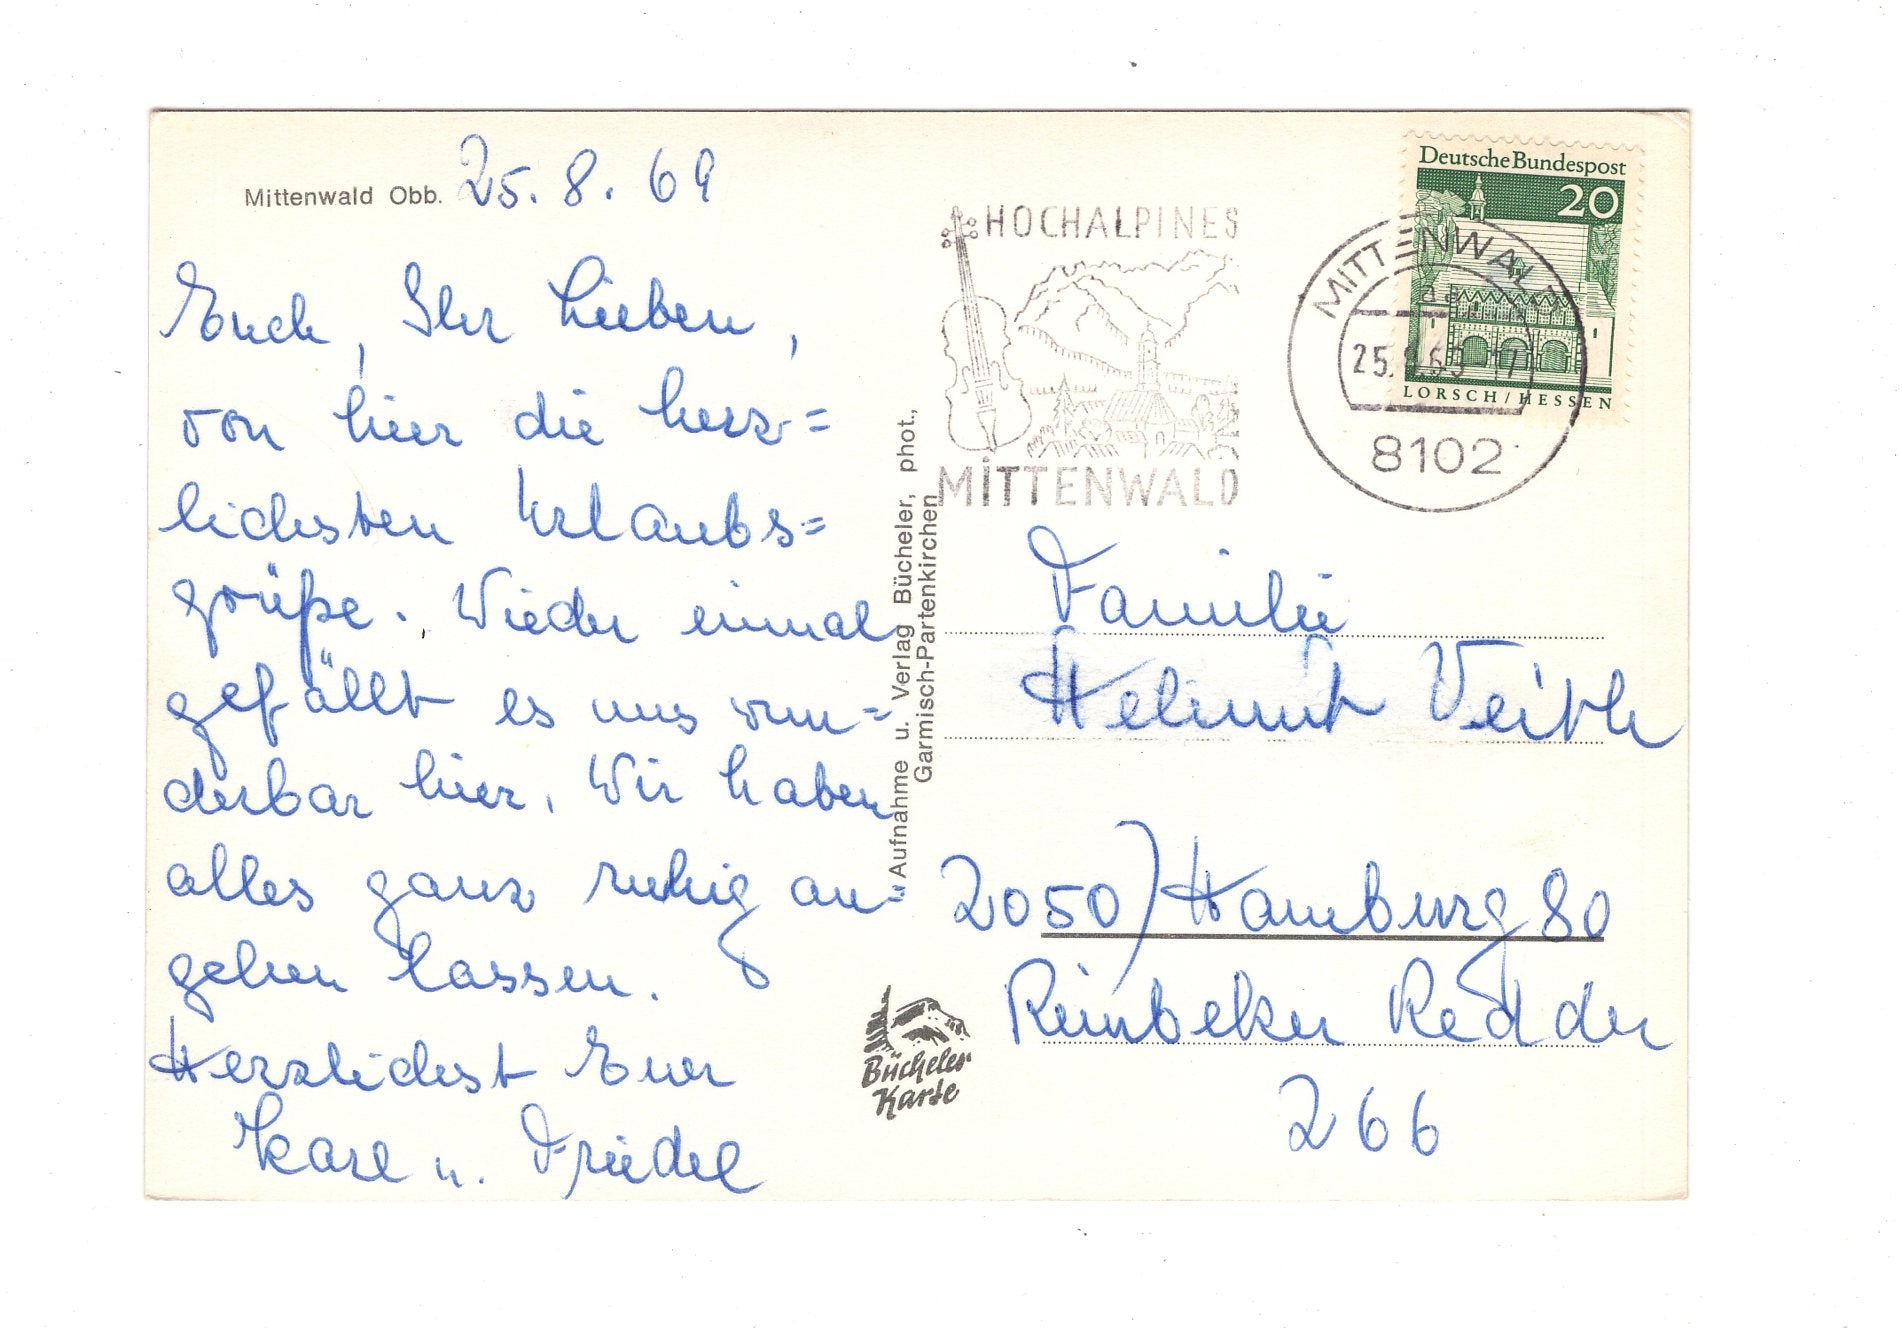 Mittenwald Obb. 25.8.69
Euch, Ihr Lieben,
von hier die herz=
lichsten Urlaubs=
grüße. Wieder einmal
gefällt es uns wun=
derbar hier. Wir haben
alles ganz ruhig an=
gehen lassen.
Herzlichst Euer
Karl u. Friedel
Aufnahme u. Verlag Bücheler, phot.,
Garmisch-Partenkirchen
Bücheler
Karte
HOCHALPINES
MITTENWALD
Deutsche Bundespost
20
LORSCH/HESSEN
MITTENWALD
25.8.69-17
8102
Familie
Helmut Veith
2050) Hamburg 80
Reinbeker Redder
266